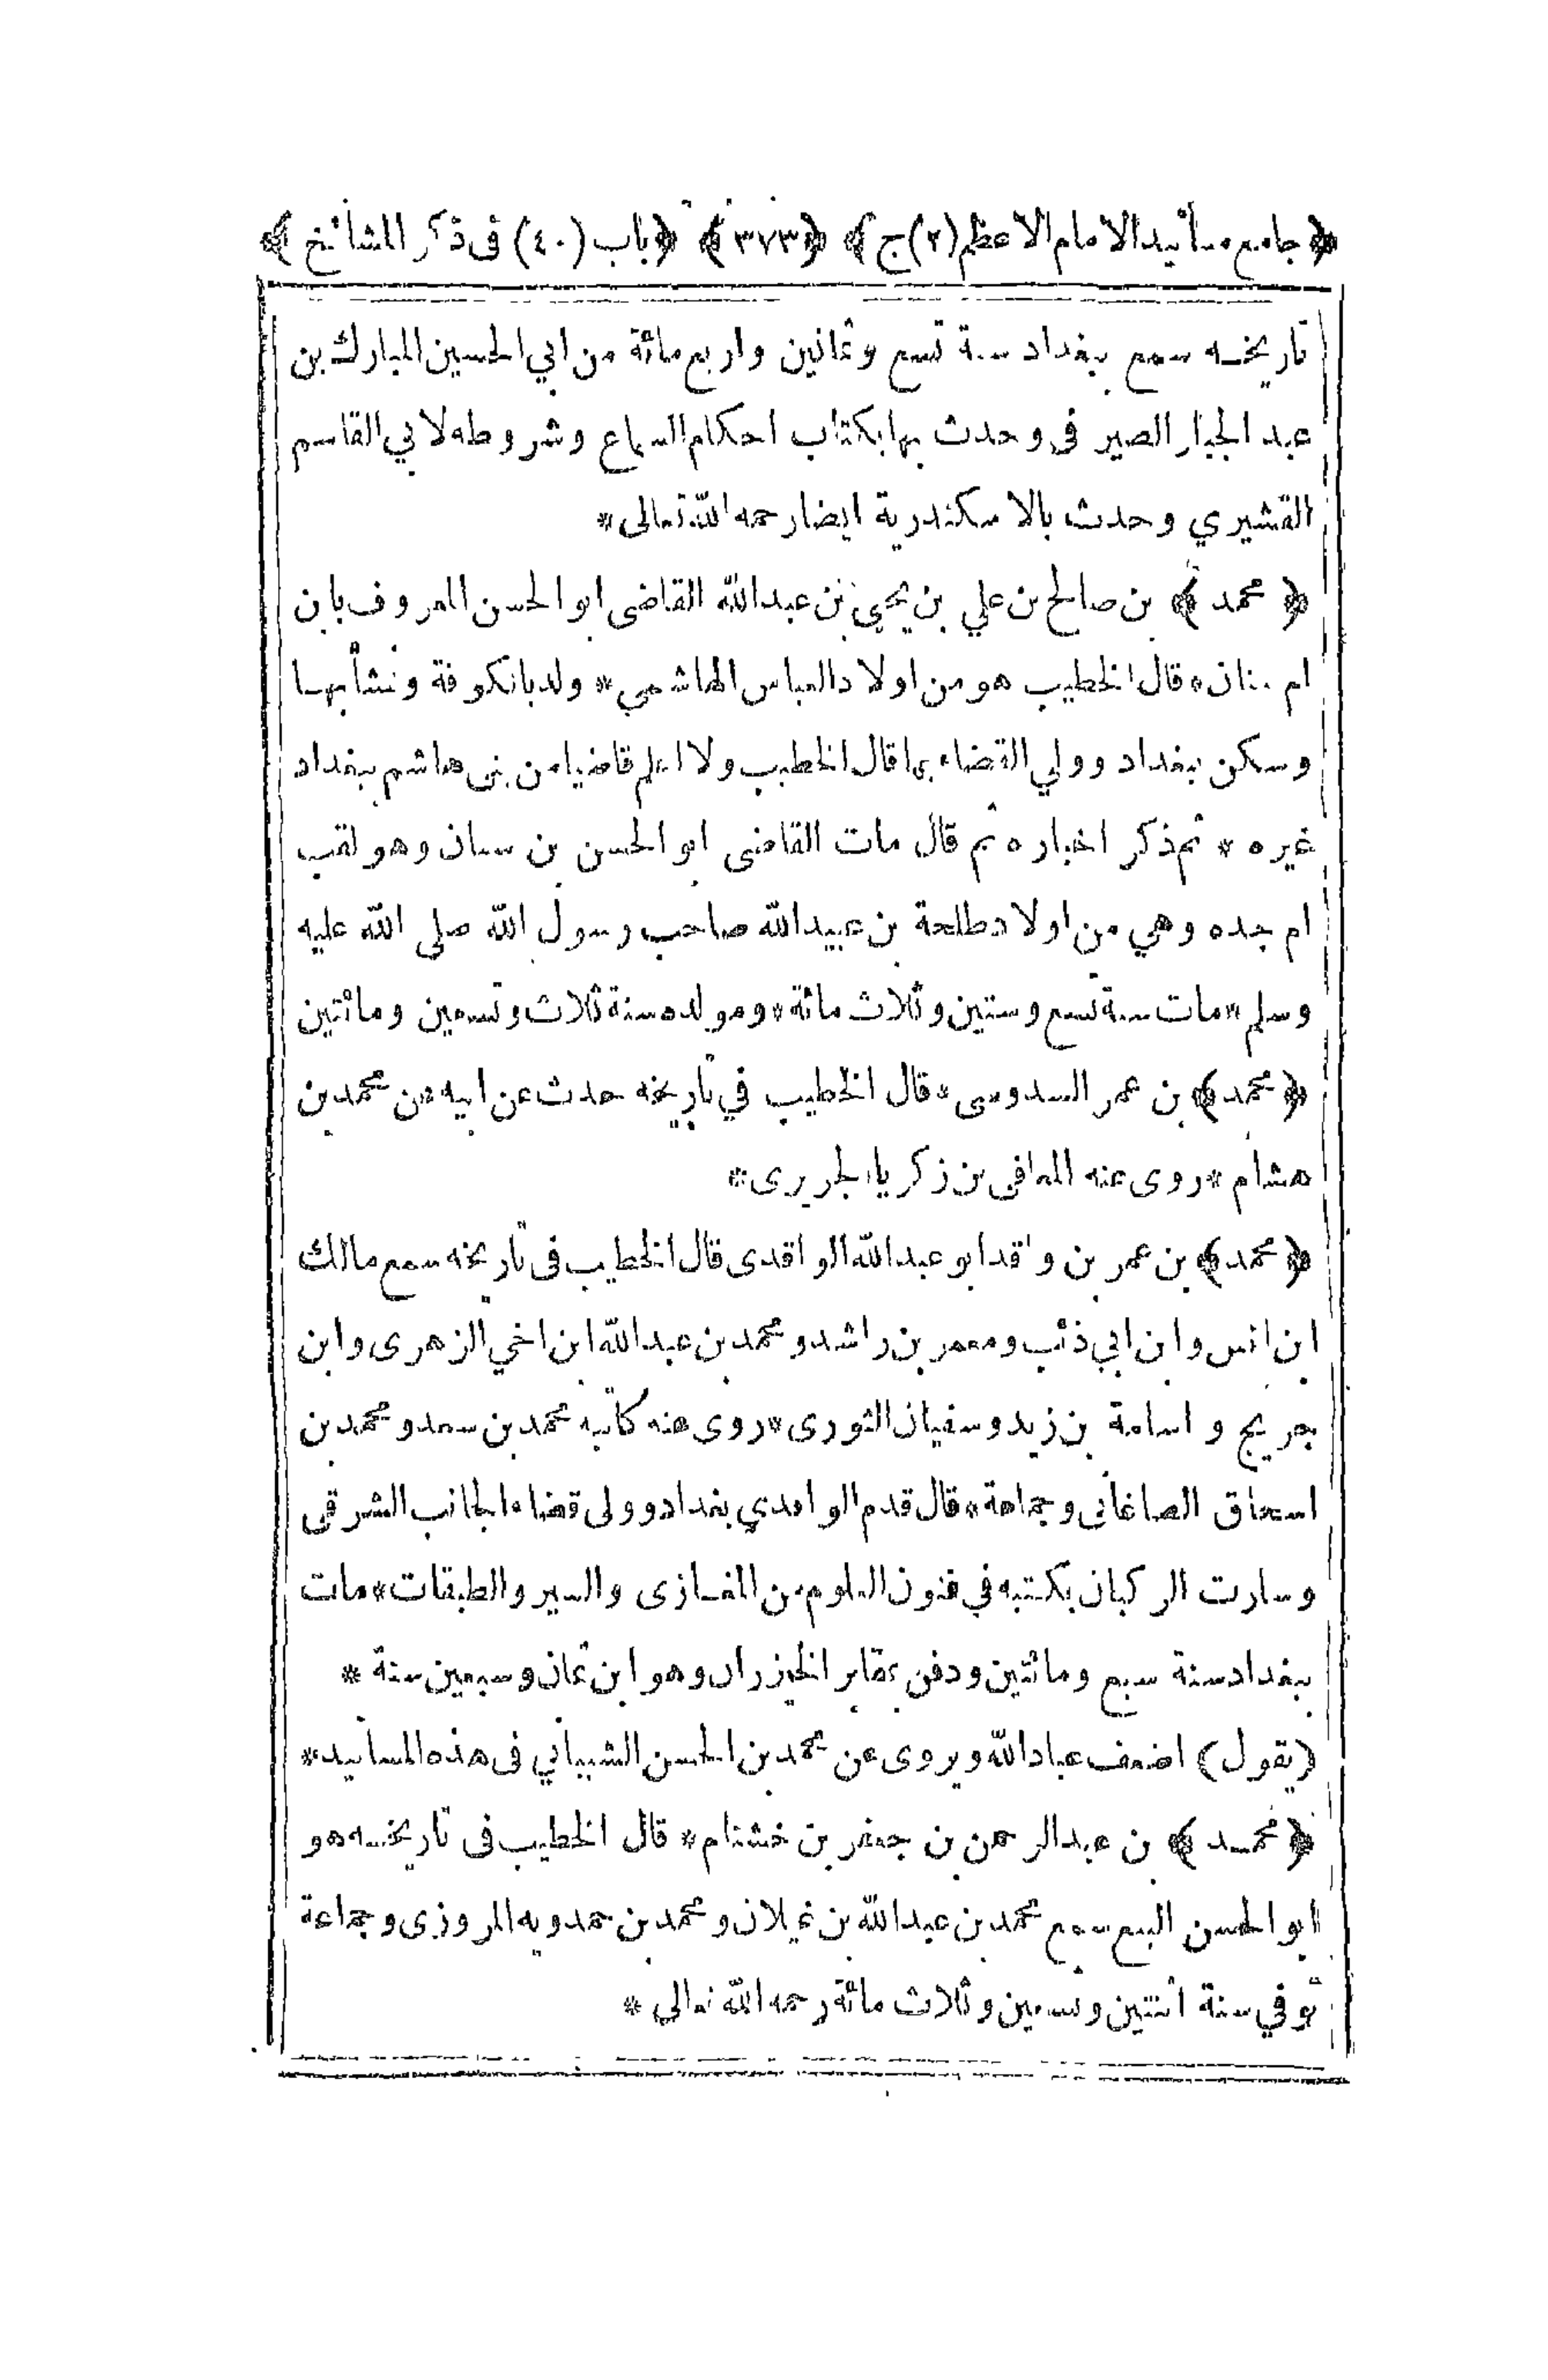 ﴿جامع مسانيد الامام الاعظم (٢) ج﴾ ﴿٣٧٣﴾ ﴿باب (٤٠) فى ذكر المشائخ﴾
تاريخه سمع ببغداد سنة تسع وثمانين واربع مائة من ابي الحسين المبارك بن
عبد الجبار الصيرفى وحدث بها بكتاب احكام السماع وشروطه لابي القاسم
القشيري وحدث بالاسكندرية ايضا رحمه الله تعالى*
﴿محمد﴾ بن صالح بن علي بن يحيى بن عبدالله القاضى ابو الحسن المعروف بابن
ام * قال الخطيب هو من اولاد العباس الهاشمي* ولد بالكوفة ونشأ بها
وسكن ببغداد وولي القضاء بها قال الخطيب ولا اعلم قاضيا من بنى هاشم ببغداد
غيره * ثم ذكر اخباره ثم قال مات القاضى ابو الحسن بن وهو لقب
ام جده وهي من اولاد طلحة بن عبيدالله صاحب رسول الله صلى الله عليه
وسلم*مات سنة تسع وستين وثلاث مائة*ومولده سنة ثلاث وتسعين ومائتين
﴿محمد﴾ بن عمر السدوسى*قال الخطيب في تاريخه حدث عن ابيه عن محمد بن
هشام*روى عنه المعافى بن زكريا الجريرى*
﴿محمد﴾ بن عمر بن واقد ابو عبدالله الواقدى قال الخطيب فى تاريخه سمع مالك
ابن انس وابن ابي ذئب ومعمر بن راشد ومحمد بن عبدالله ابن اخي الزهرى وابن
جريج و اسامة بن زيد وسفيان الثورى*روى عنه كاتبه محمد بن سعد ومحمد بن
اسحاق الصاغانى وجماعة*قال قدم الواقدي بغداد وولى قضاء الجانب الشرقى
وسارت الركبان بكتبه في فنون العلوم من المغازى والسير والطبقات*مات
ببغداد سنة سبع ومائتين ودفن بمقابر الخيزران وهو ابن ثمان وسبعين سنة *
(يقول) اضعف عباد الله ويروى عن محمد بن الحسن الشيباني فى هذه المسانيد*
﴿محمد﴾ بن عبدالرحمن بن جعفر بن خشنام* قال الخطيب فى تاريخه هو
ابو الحسن البيع سمع محمد بن عبدالله بن غيلان ومحمد بن حمدويه المروزى وجماعة
توفي سنة اثنتين وتسعين وثلاث مائة رحمه الله تعالى *